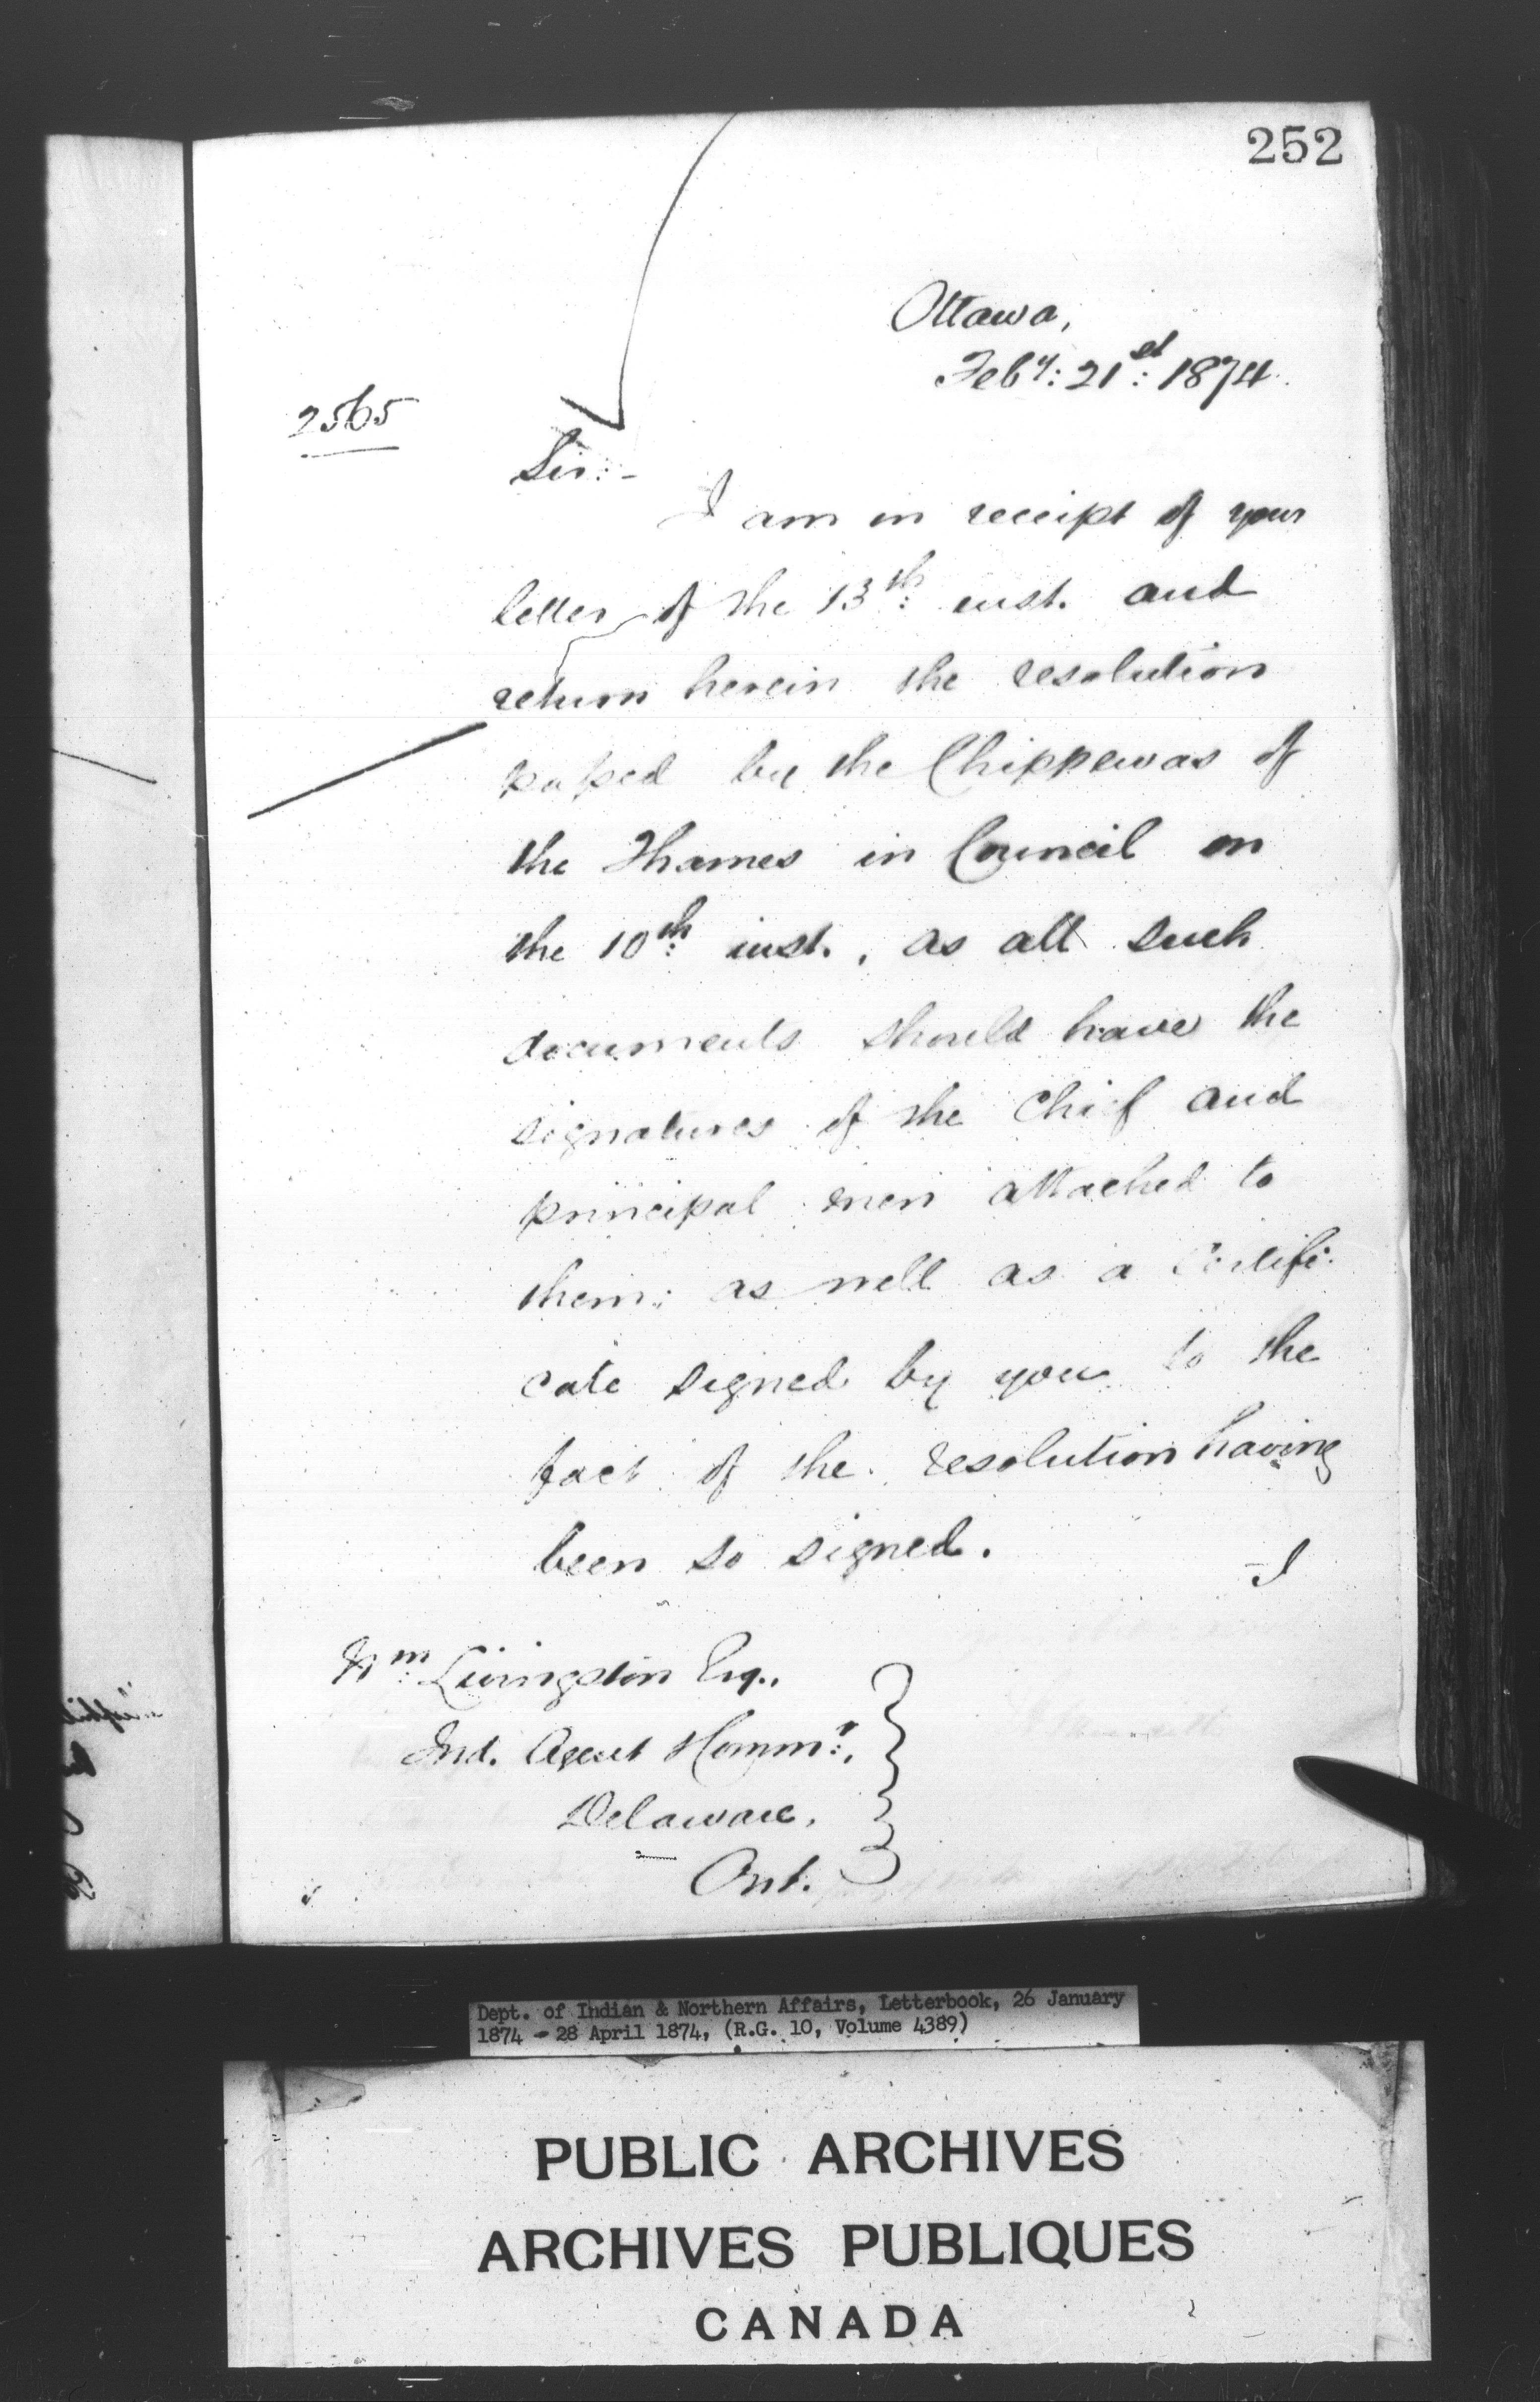 252
Ottawa,
Feby: 21st: 1874.
2565
Sir:-
I am in receipt of your
letter of the 13th: inst. and
return herein the resolution
passed by the Chippewas of
the Thames in Council on
the 10th: inst., as all such
documents should have the
signatures of the Chief and
principal men attached to
them; as well as a Certifi-
cate signed by you to the
fact of the resolution having
been so signed.
-I
Wm: Livingston Esq.,
Ind. Agent & Commr:,
Delaware,
Ont.
Dept. of Indian & Northern Affairs, Letterbook, 26 January
1874 - 28 April 1874, (R.G. 10, Volume 4389)
PUBLIC ARCHIVES
ARCHIVES PUBLIQUES
CANADA